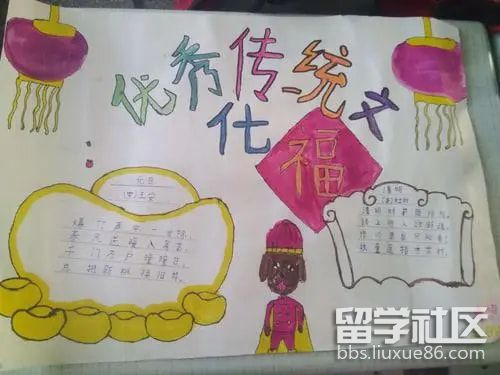 优秀传统文
化
福
元日
(宋)王安
爆竹声中一岁除,
春风送暖入屠苏。
千门万户曈曈日,
总把新桃换旧符。
清明
(唐)杜牧
清明时节雨纷纷,
路上行人欲断魂。
牧童遥指杏花村。
留学社区
bbs.liuxue86.com